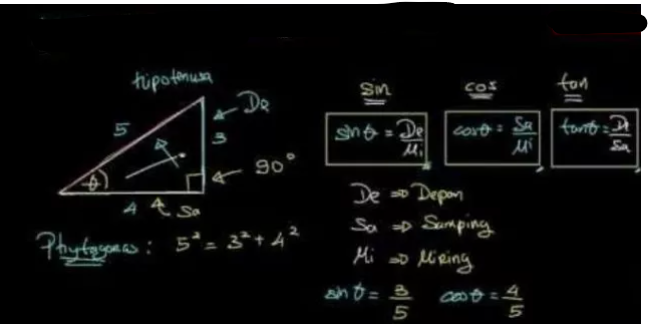 hipotenusa
De
5
3
90°
θ
4
Sa
Phytagoras : 5² = 3² + 4²
sin
sin θ = De/Mi
cos
cos θ = Sa/Mi
tan
tan θ = De/Sa
De ⇒ Depan
Sa ⇒ Samping
Mi ⇒ Miring
sin θ = 3/5 cos θ = 4/5